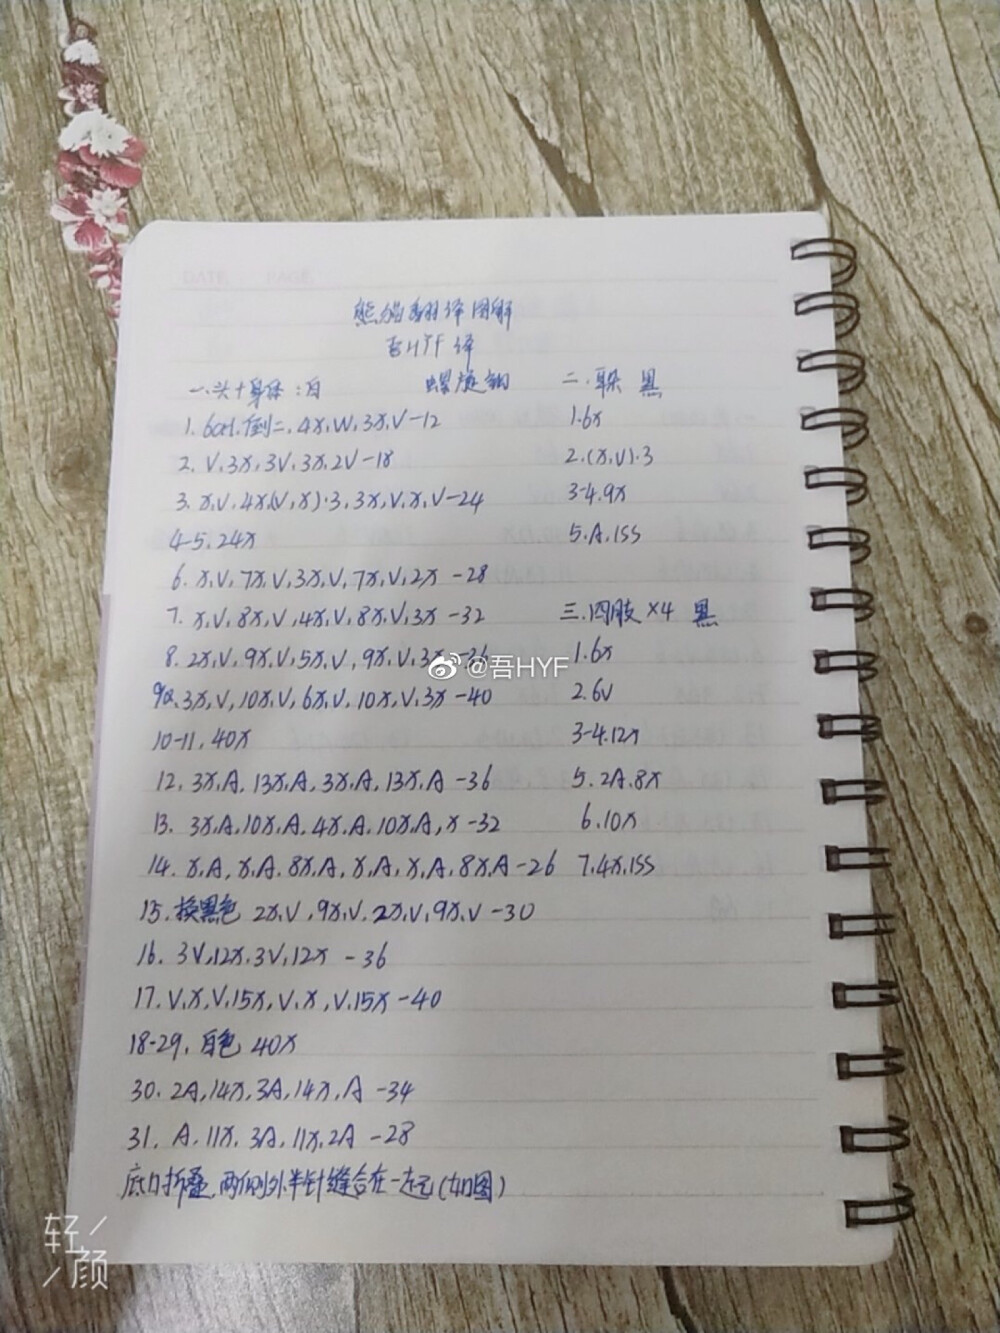 DATE PAGE
熊猫翻译图解
吾HYF 译
一.头+身体:白 螺旋钩
1. 6CH.倒二.4X,W,3X,V-12
2. V.3X,3V,3X,2V-18
3. X,V,4X,(V,X)·3,3X,V,X,V-24
4-5.24X
6. X,V,7X,V,3X,V,7X,V,2X -28
7. X,V,8X,V,4X,V,8X,V,3X -32
8. 2X,V,9X,V,5X,V,9X,V,3X-36
9. 3X,V,10X,V,6X,V,10X,V,3X -40
10-11.40X
12. 3X,A,13X,A,3X,A,13X,A -36
13. 3X,A,10X,A,4X,A,10X,A,X -32
14. X,A,X,A,8X,A,X,A,X,A,8X,A-26
15.换黑色 2X,V,9X,V,2X,V,9X,V -30
16. 3V,12X,3V,12X -36
17. V,X,V,15X,V,X,V,15X -40
18-29.白色 40X
30. 2A,14X,3A,14X,A -34
31. A,11X,3A,11X,2A -28
底口折叠,两侧外半针缝合在一起(如图)
二.耳朵 黑
1.6X
2.(X,V)·3
3-4.9X
5.A.1SS
三.四肢×4 黑
1.6X
2.6V
3-4.12X
5.2A.8X
6.10X
7.4X.1SS
@吾HYF
轻颜